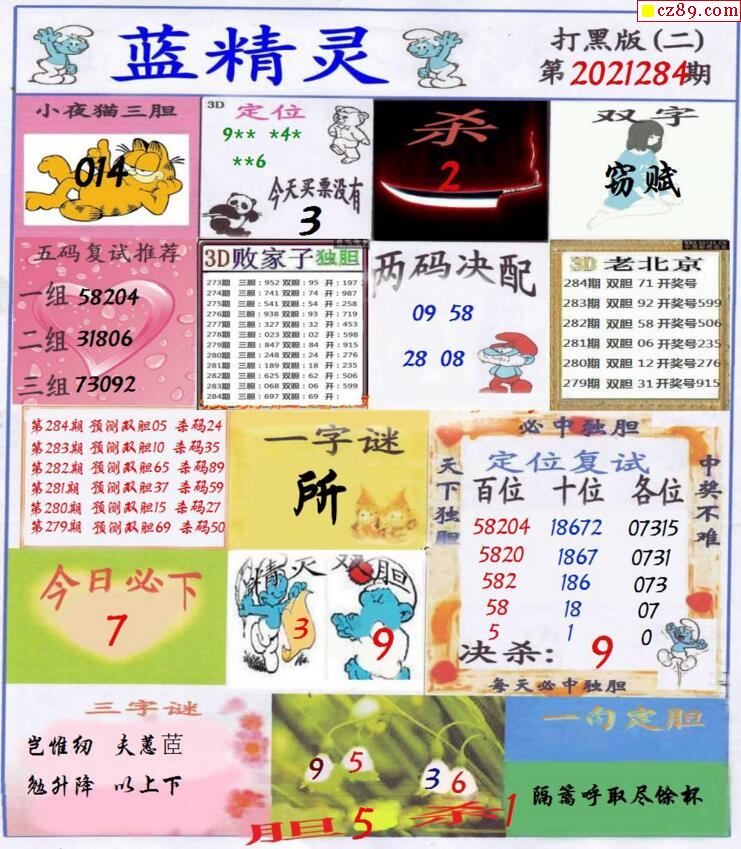 cz89.com
蓝精灵
打黑版(二)
第2021284期
小夜猫三胆
014
3D 定位
9** *4*
**6
今天买票没有
3
杀
2
双字
窈赋
五码复试推荐
一组 58204
二组 31806
三组 73092
3D败家子独胆
273期 三胆:952 双胆:95 开:197
274期 三胆:741 双胆:74 开:987
275期 三胆:541 双胆:54 开:258
276期 三胆:938 双胆:93 开:719
277期 三胆:327 双胆:32 开:453
278期 三胆:023 双胆:02 开:598
279期 三胆:847 双胆:84 开:915
280期 三胆:248 双胆:24 开:276
281期 三胆:189 双胆:18 开:235
282期 三胆:625 双胆:62 开:506
283期 三胆:068 双胆:06 开:599
284期 三胆:697 双胆:69 开:
两码决配
09 58
28 08
3D 老北京
284期 双胆 71 开奖号
283期 双胆 92 开奖号599
282期 双胆 58 开奖号506
281期 双胆 06 开奖号235
280期 双胆 12 开奖号276
279期 双胆 31 开奖号915
第284期 预测双胆05 杀码24
第283期 预测双胆10 杀码35
第282期 预测双胆65 杀码89
第281期 预测双胆37 杀码59
第280期 预测双胆15 杀码27
第279期 预测双胆69 杀码50
一字谜
所
必中独胆
天下独胆
中奖不难
定位复试
百位 十位 各位
58204 18672 07315
5820 1867 0731
582 186 073
58 18 07
5 1 0
决杀: 9
每天必中独胆
今日必下
7
精灵双胆
3
9
三字谜
岂惟纫 夫蕙茝
勉升降 以上下
9 5
3 6
胆 5 杀 1
一句定胆
隔篱呼取尽馀杯